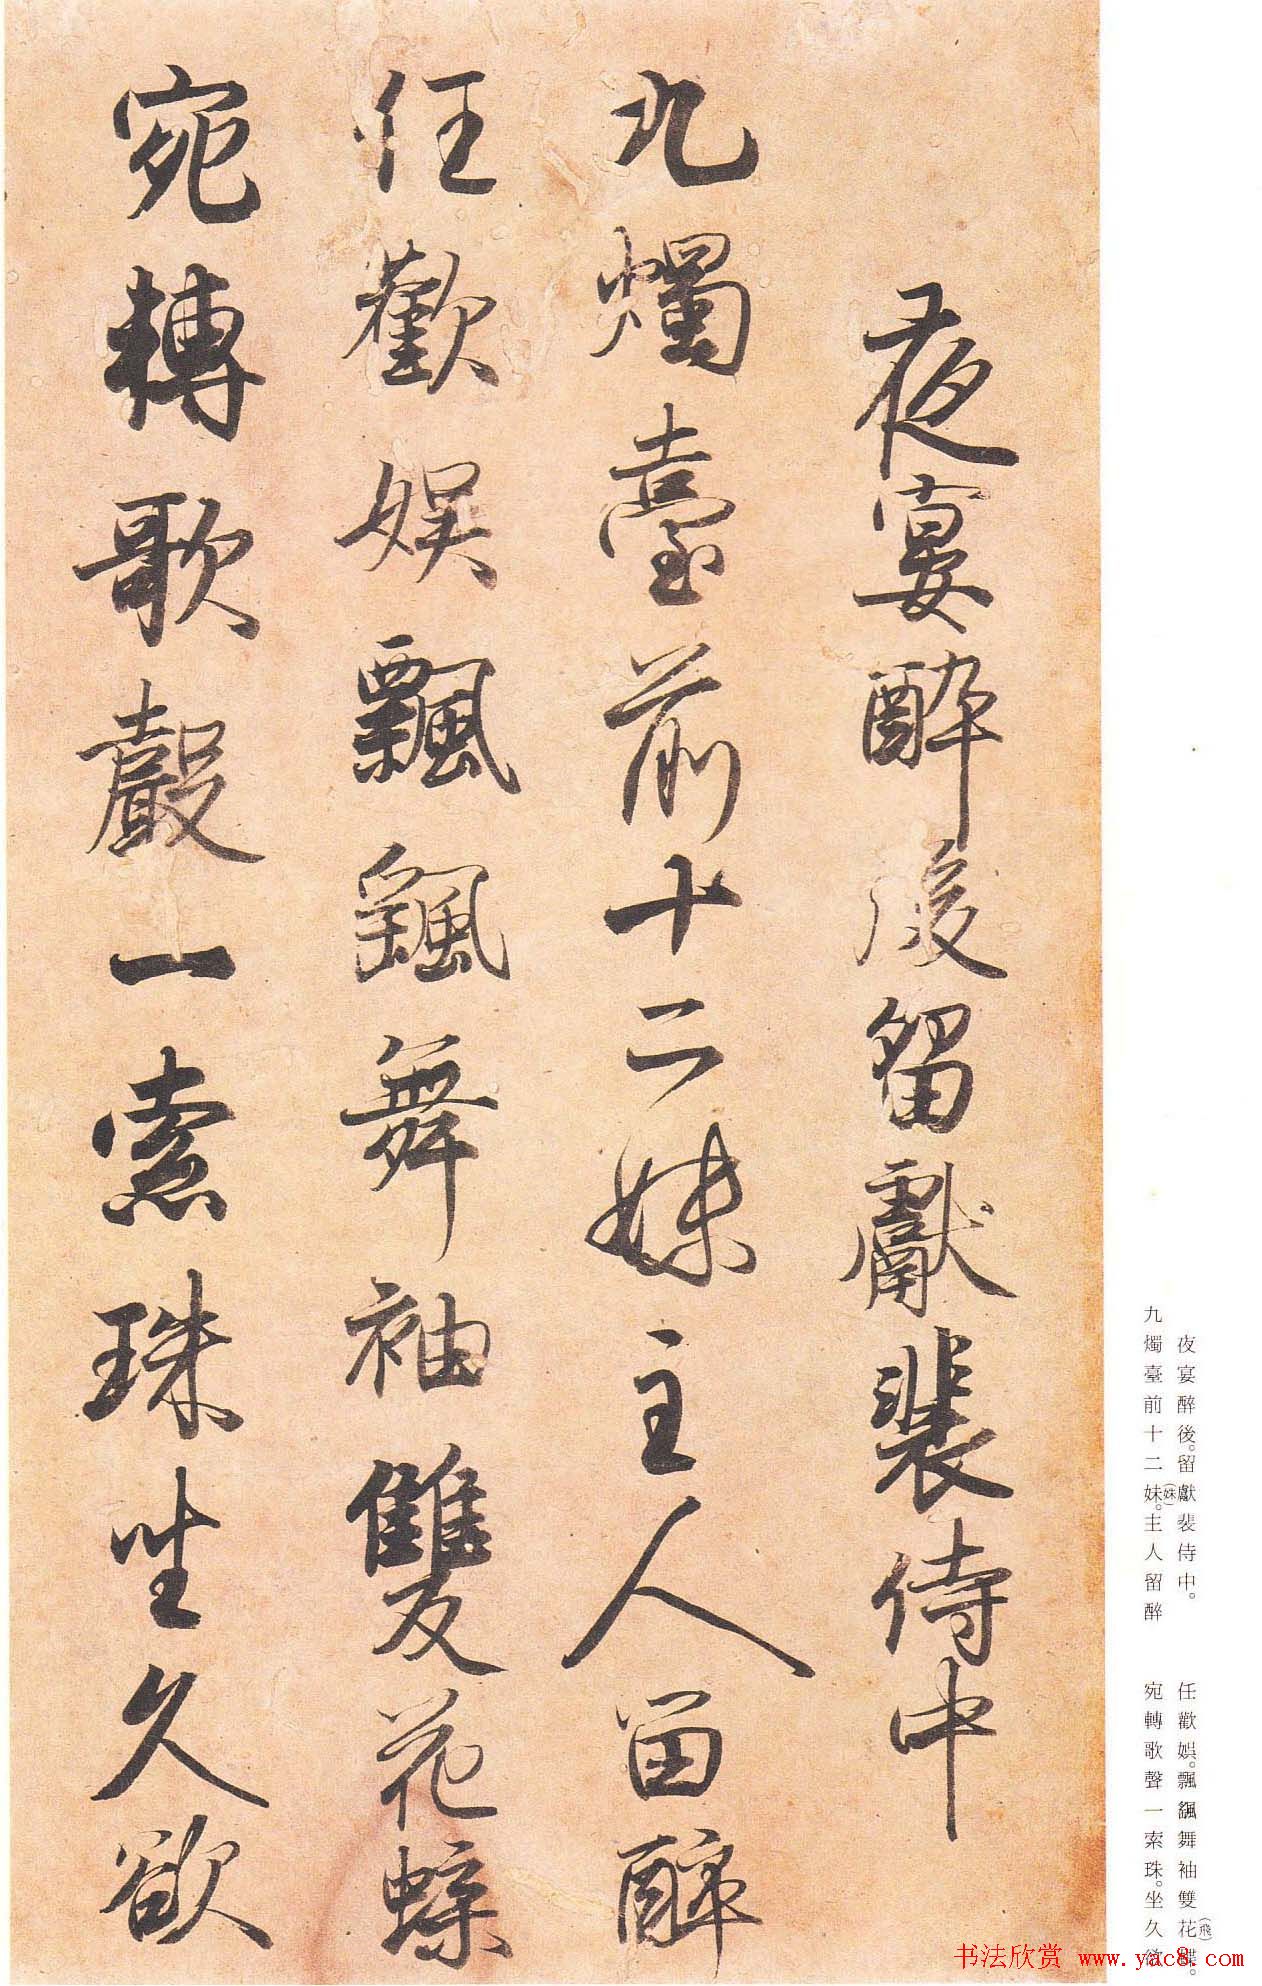 夜宴醉後留獻裴侍中
九燭臺前十二妹主人留醉
任歡娛飄颻舞袖雙花蝶
宛轉歌聲一索珠坐久欲
夜宴醉後。留獻裴侍中。
九燭臺前十二妹。(姝)主人留醉
任歡娛。飄颻舞袖雙花(飛)蝶。
宛轉歌聲一索珠。坐久欲
书法欣赏 www.yac8.com